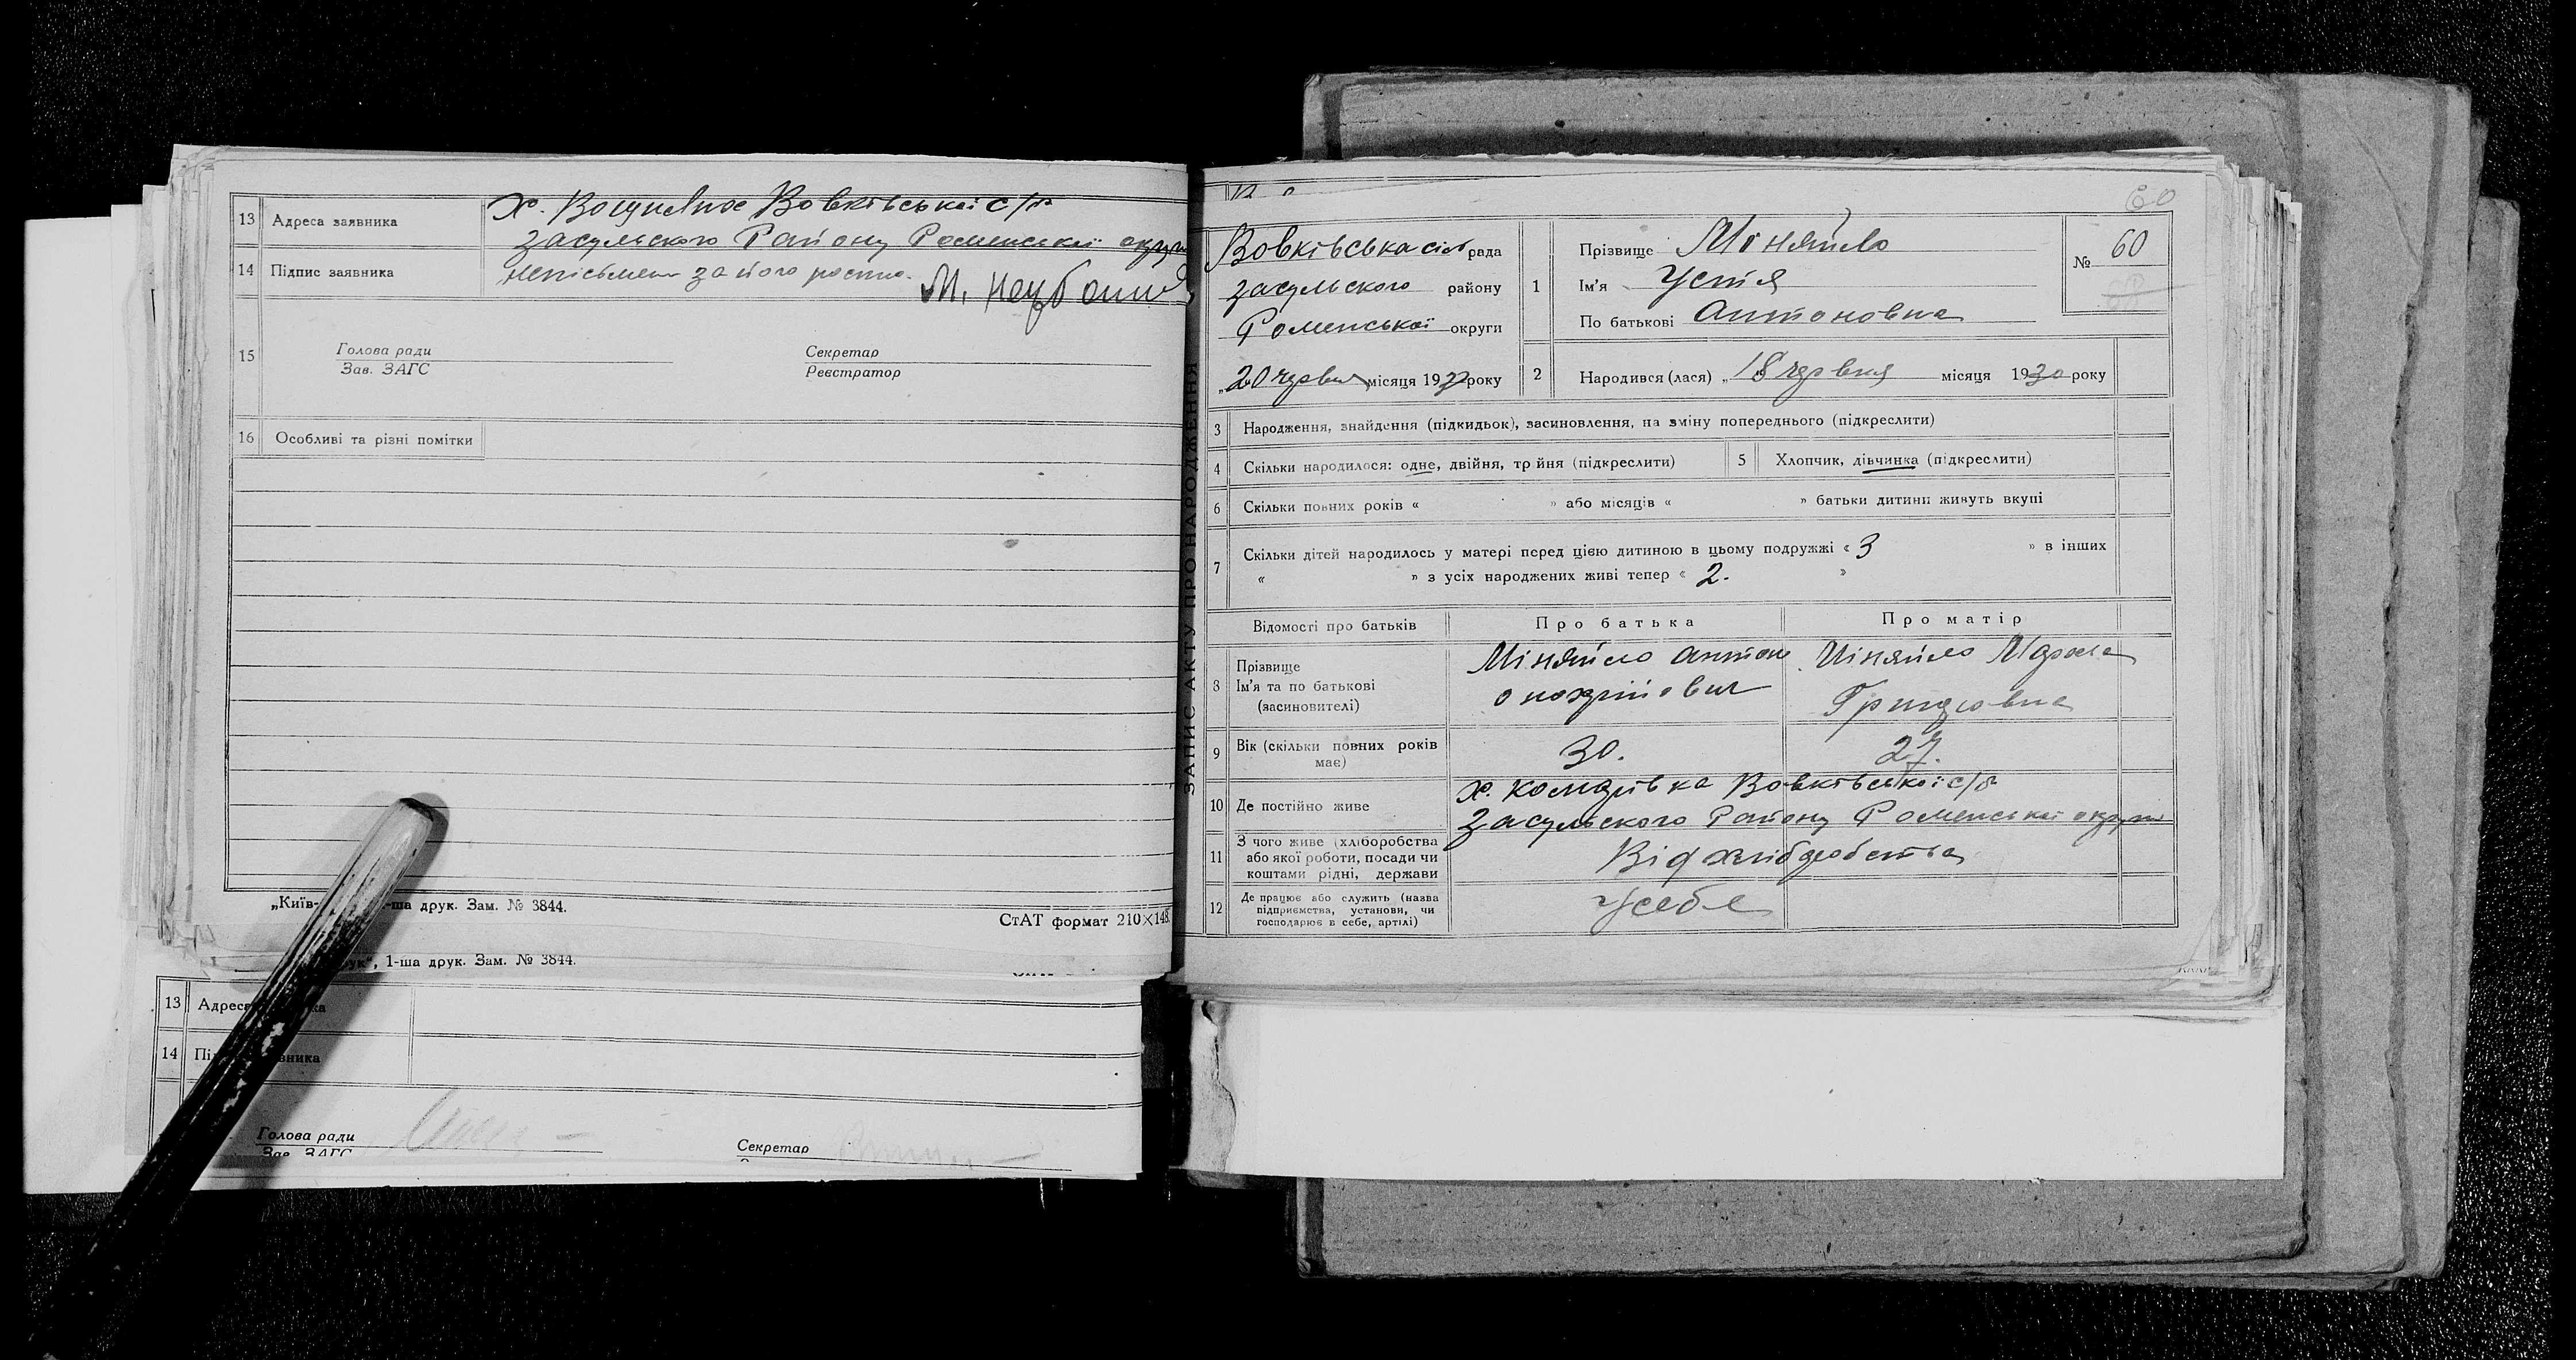 13 Адреса заявника х. Вовківської с/р
Засульского Району Роменської округи
14 Підпис заявника неписьмен за його роспис.
М.
15 Голова ради
Зав. ЗАГС
Секретар
Реєстратор
16 Особливі та різні помітки
„Київ- -ша друк. Зам. № 3844.
СтАТ формат 210×148.
ук", 1-ша друк. Зам. № 3844.
13 Адрес ка
14 Пі вника
Голова ради
Зав. ЗАГС
Секретар
ЗАПИС АКТУ ПРО НАРОДЖЕННЯ
60
Вовківська сіл рада
Засульского району
Роменської округи
„20 червня місяця 1930 року
1 Прізвище Міняйло
Ім'я Устя
По батькові Антоновна
№ 60
2 Народився (лася) „18 червня місяця 1930 року
3 Народження, знайдення (підкидьок), засиновлення, на зміну попереднього (підкреслити)
4 Скільки народилося: одне, двійня, трійня (підкреслити) 5 Хлопчик, дівчинка (підкреслити)
6 Скільки повних років « » або місяців « » батьки дитини живуть вкупі
7 Скільки дітей народилось у матері перед цією дитиною в цьому подружжі « 3 » в інших
« » з усіх народжених живі тепер « 2. »
Відомості про батьків Про батька Про матір
8 Прізвище
Ім'я та по батькові
(засиновителі)
Міняйло Антон
Міняйло
9 Вік (скільки повних років має) 30. 27.
10 Де постійно живе х. Вовківської с/р
Засульского Району Роменської округи
11 З чого живе (хліборобства
або якої роботи, посади чи
коштами рідні, держави
Від хліборобства
12 Де працює або служить (назва
підприємства, установи, чи
господарює в себе, артілі)
У себе